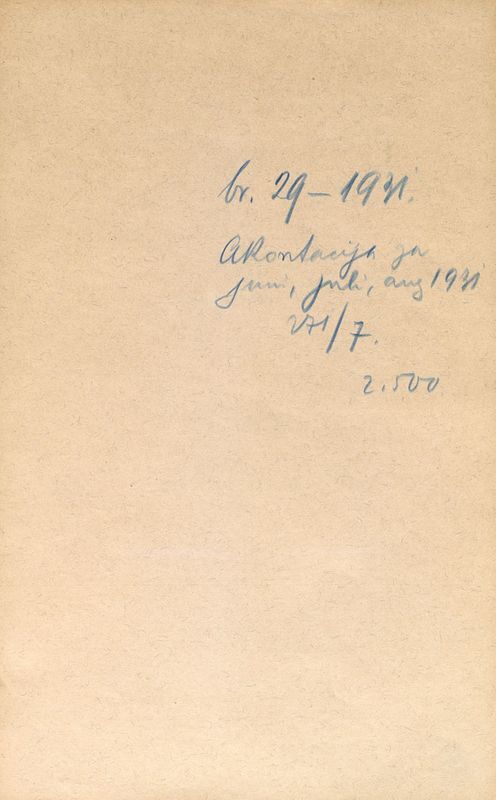 br. 29 – 1931.
Akontacija za
juni, juli, aug 1931
271/7.
2.500